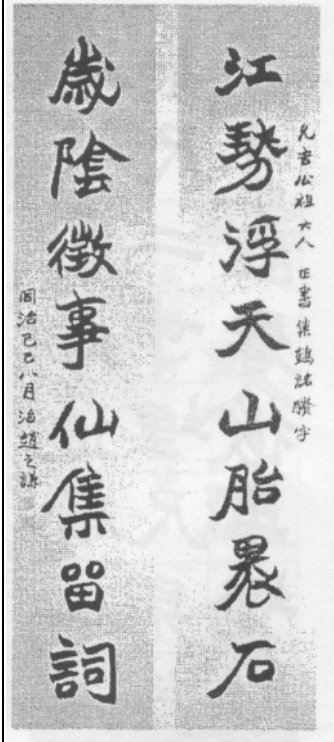 江勢浮天山胎裹石
允吉公祖大人 正書集鶴銘賸字
歲陰徵事仙集留詞
同治己巳八月治趙之謙